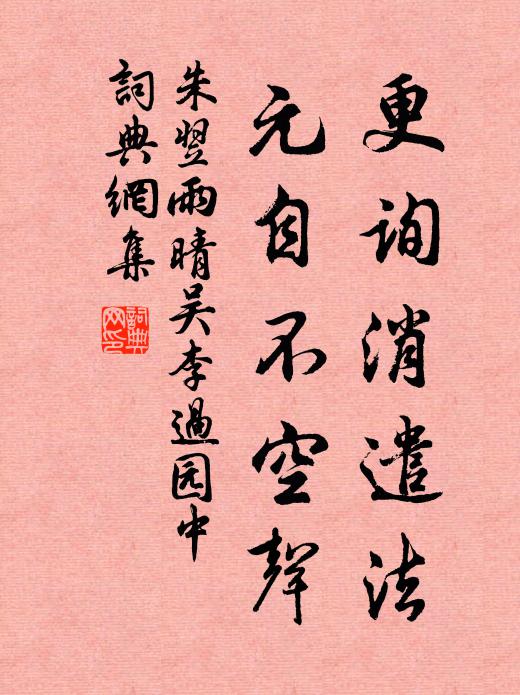 更詢消遣法
元自不空聲
朱翌雨晴吴李過园中
詞典網集
詞典网印